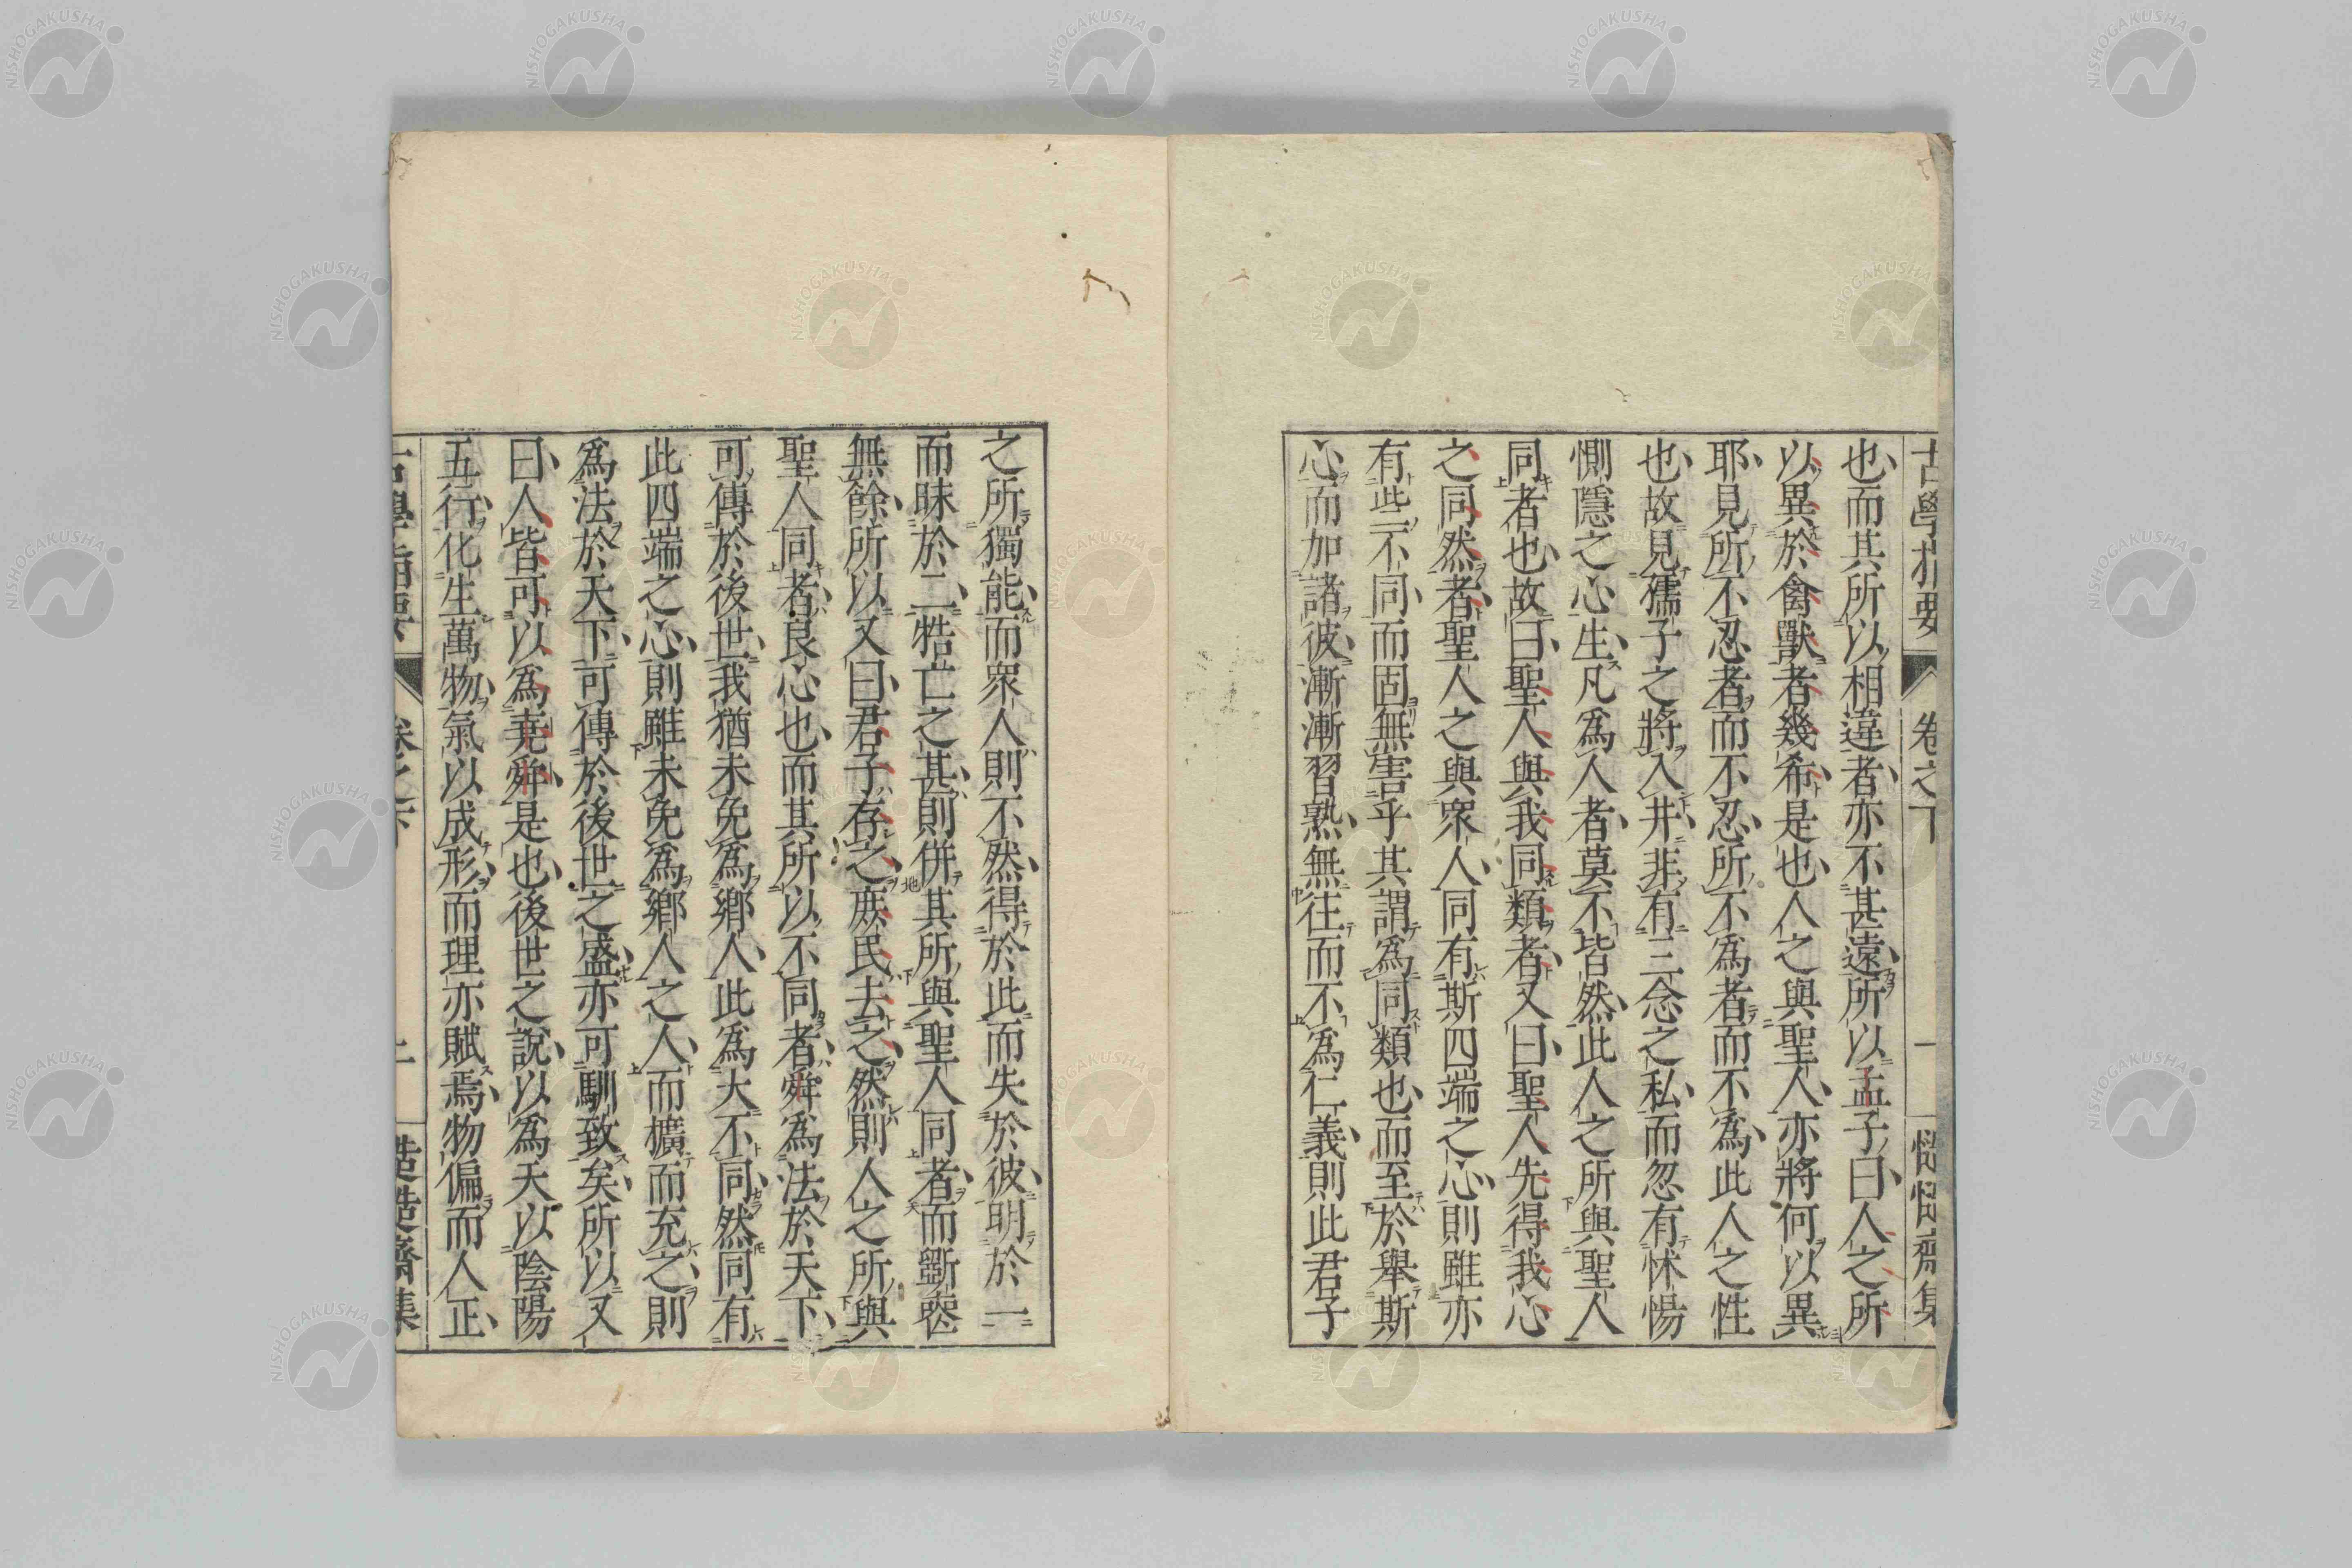 古學指要 卷之下 一
也而其所以相違者亦不甚遠所以孟子曰人之所
以異於禽獸者幾希是也人之與聖人亦將何以異
耶見所不忍者而不忍所不爲者而不爲此人之性
也故見孺子之將入井非有三念之私而忽有怵惕
惻隱之心生凡爲人者莫不皆然此人之所與聖人
同者也故曰聖人與我同類者又曰聖人先得我心
之同然者聖人之與衆人同有斯四端之心則雖亦
有些不同而固無害乎其謂爲同類也而至於舉斯
心而加諸彼漸漸習熟無往而不爲仁義則此君子
之所獨能而衆人則不然得於此而失於彼明於一
而昧於二牿亡之甚則併其所與聖人同者而斵喪
無餘所以又曰君子存之庶民去之然則人之所與
聖人同者良心也而其所以不同者舜爲法於天下
可傳於後世我猶未免爲鄉人此爲大不同然同有
此四端之心則雖未免爲鄉人之人而擴而充之則
爲法於天下可傳於後世之盛亦可馴致矣所以又
曰人皆可以爲堯舜是也後世之說以爲天以陰陽
五行化生萬物氣以成形而理亦賦焉物偏而人正
NISHOGAKUSHA